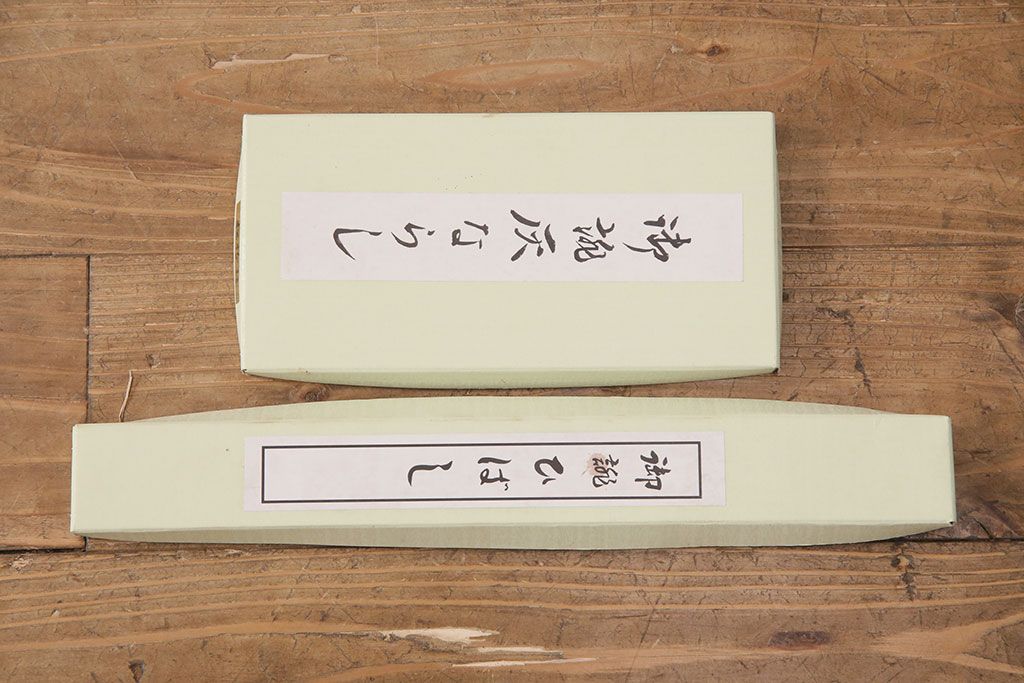 御誂灰ならし
御誂ひばし